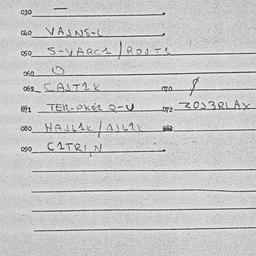 030 —
040 VAJNS-L
050 S-VARC1 / ROST1
060 O
069 CAST2K 070 ∅
071 TER-PKG1 O-U 072 ZOJ3RLAX
080 HAJL1K / AJL1K
090 C1TRIN